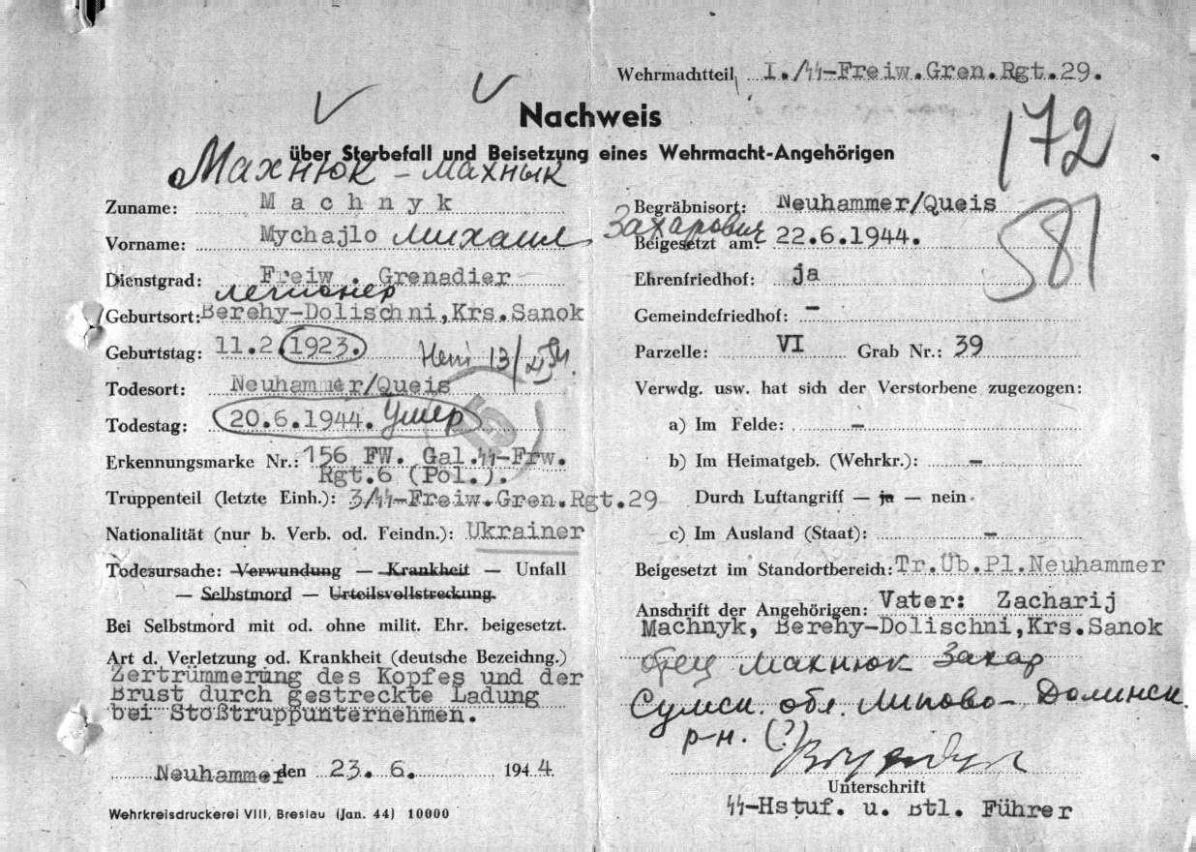 Wehrmachtteil I./SS-Freiw.Gren.Rgt.29.
Nachweis
über Sterbefall und Beisetzung eines Wehrmacht-Angehörigen
172
Махнюк - Махнык
Zuname: Machnyk
Vorname: Mychajlo Михаил Захарович
Dienstgrad: Freiw. Grenadier
легионер
Geburtsort: Berehy-Dolischni,Krs.Sanok
Geburtstag: 11.2.1923.
Todesort: Neuhammer/Queis
Todestag: 20.6.1944. Умер
Erkennungsmarke Nr.: 156 FW. Gal.SS-Frw.
Rgt.6 (Pol.).
Truppenteil (letzte Einh.): 3/SS-Freiw.Gren.Rgt.29
Nationalität (nur b. Verb. od. Feindn.): Ukrainer
Todesursache: Verwundung — Krankheit — Unfall
— Selbstmord — Urteilsvollstreckung.
Bei Selbstmord mit od. ohne milit. Ehr. beigesetzt.
Art d. Verletzung od. Krankheit (deutsche Bezeichng.)
Zertrümmerung des Kopfes und der
Brust durch gestreckte Ladung
bei Stoßtruppunternehmen.
Neuhammer den 23. 6. 1944.
Wehrkreisdruckerei VIII, Breslau (Jan. 44) 10000
Begräbnisort: Neuhammer/Queis
Beigesetzt am: 22.6.1944.
581
Ehrenfriedhof: ja
Gemeindefriedhof: -
Parzelle: VI Grab Nr.: 39
Verwdg. usw. hat sich der Verstorbene zugezogen:
a) Im Felde: -
b) Im Heimatgeb. (Wehrkr.): -
Durch Luftangriff — ja — nein.
c) Im Ausland (Staat): -
Beigesetzt im Standortbereich: Tr.Üb.Pl.Neuhammer
Anschrift der Angehörigen: Vater: Zacharij
Machnyk, Berehy-Dolischni,Krs.Sanok
Отец Махнюк Захар
Сумск. обл. Липово-Долинск.
р-н. (?)
Unterschrift
SS-Hstuf. u. Btl. Führer